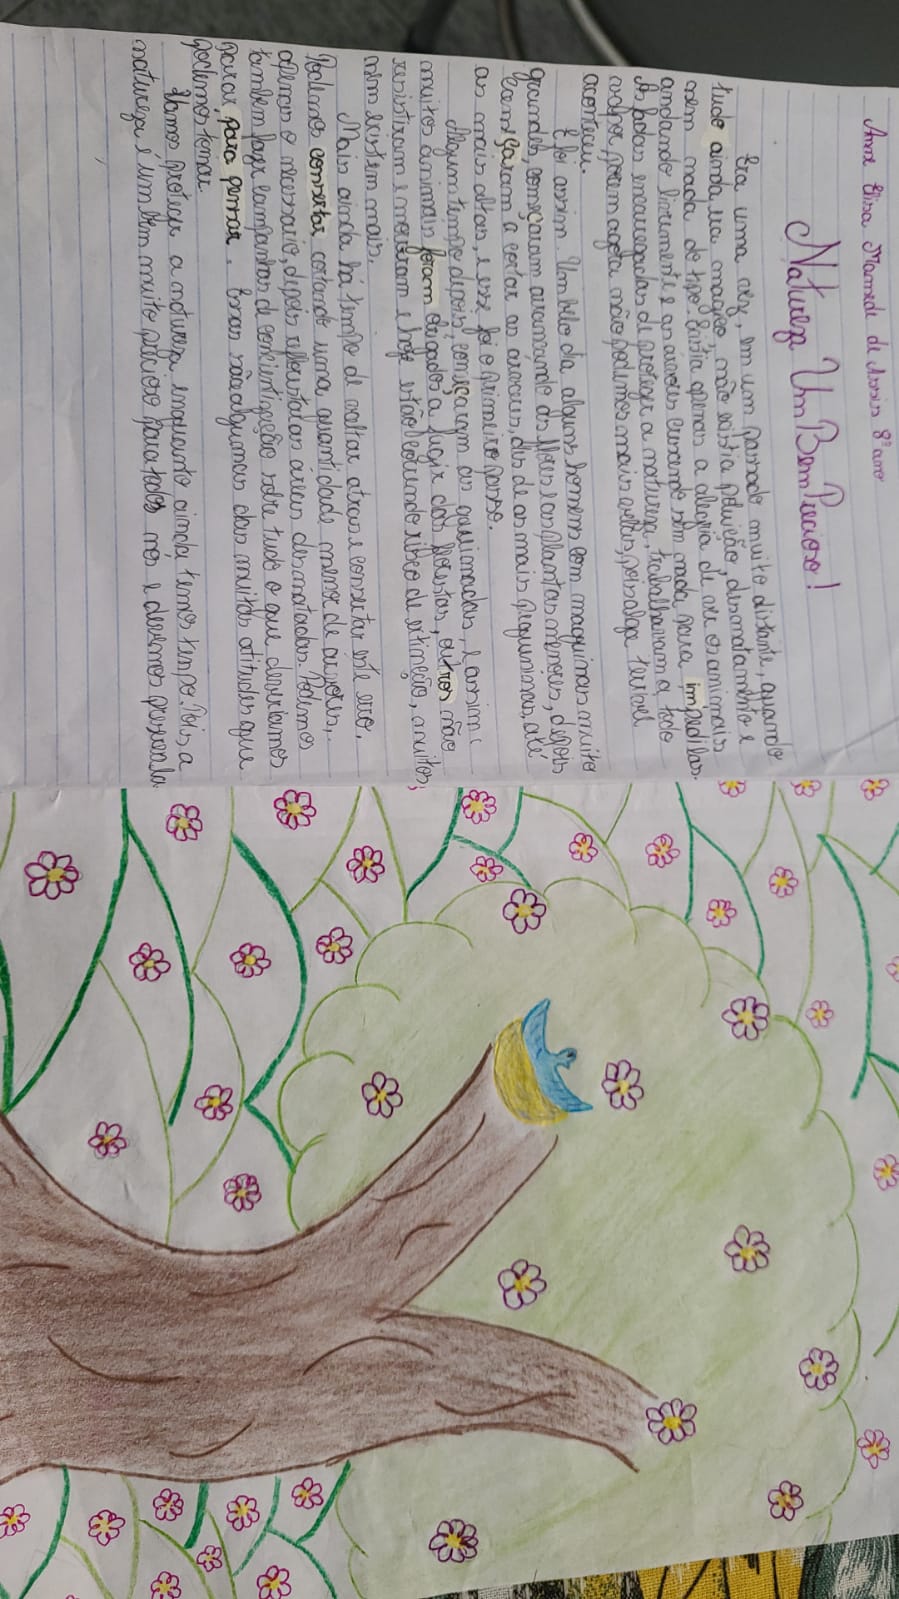 Anne Elisa Mamede de Assis 8º ano
Natureza Um Bem Precioso!
Era uma vez, em um passado muito distante, quando
tudo ainda era magico não existia poluição, desmatamento e
nem nada do tipo. Existia apenas a alegria de ver os animais
andando livremente e as árvores crescendo sem nada para impedilas.
As fadas encarregadas de proteger a natureza, trabalhavam a todo
vapor, porem agora não podemos mais vellas, pois algo terrivel
aconteceu.
E foi assim. Um belo dia alguns homens com maquinas muito
grandes, começaram arrancando as flores e as plantas menores, depois
começaram a cortar as arvores, des de as mais pequininas, até
as mais altas, e esse foi o primeiro passo.
Algum tempo depois, começaram as queimadas, e assim
muitos animais foram obrigados a fugir das florestas, outros não
resistiram e morreram e hoje estão correndo risco de extinção, muitos
nem existem mais.
Mais ainda há tempo de voltar atras e consertar este erro.
Podemos consertar cortando uma quantidade menor de arvores,
apenas o necessario, depois reflorestar as áreas desmatadas. Podemos
tambem fazer campanhas de concientização sobre tudo o que deveriamos
parar para pensar. Essas são algumas das muitas atitudes que
podemos tomar.
Vamos proteger a natureza enquanto ainda temos tempo. Pois a
natureza é um bem muito precioso para todos nós e devemos preservala.